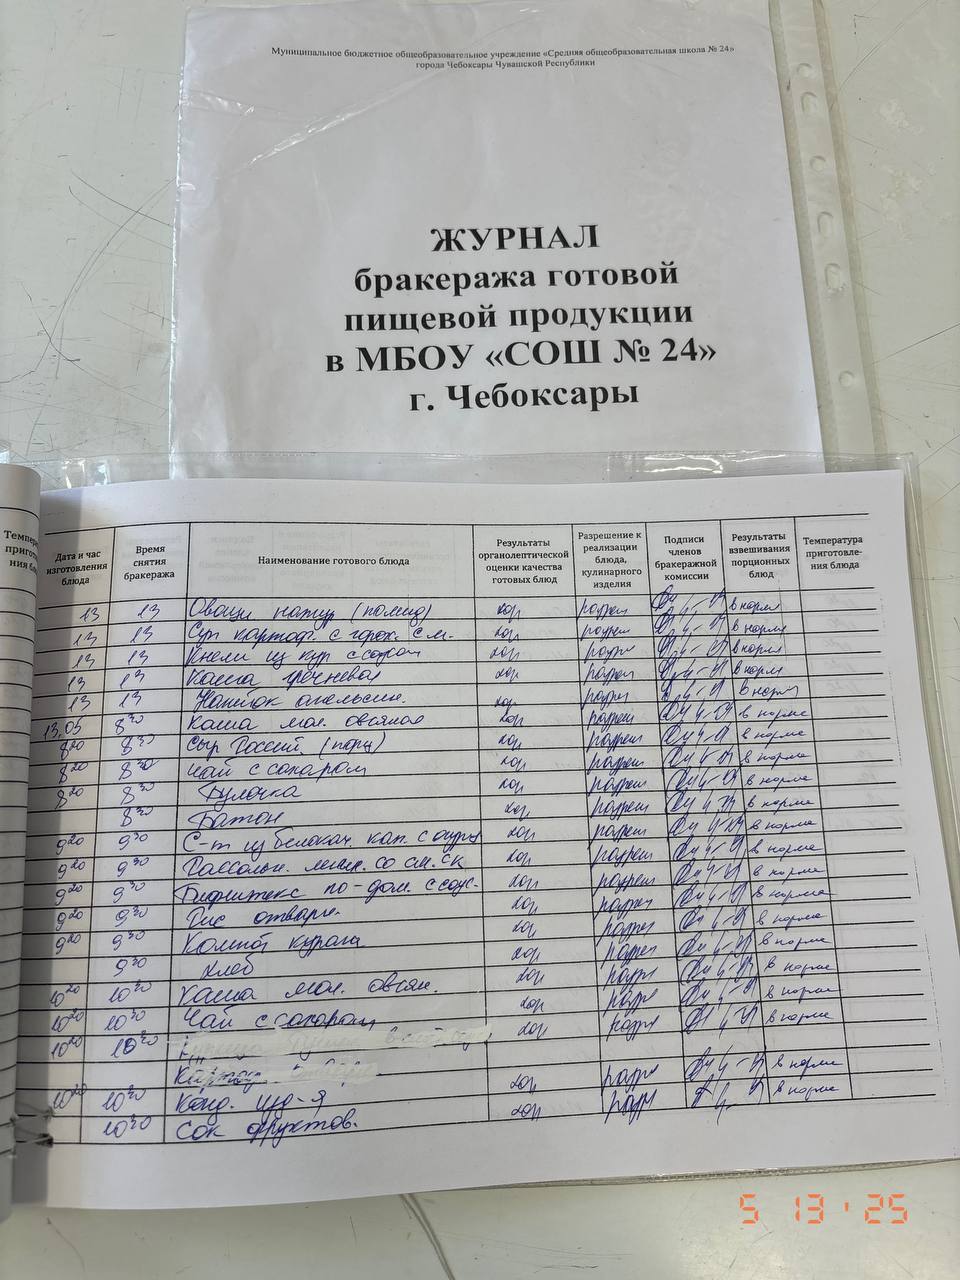 Муниципальное бюджетное общеобразовательное учреждение «Средняя общеобразовательная школа № 24»
города Чебоксары Чувашской Республики
ЖУРНАЛ
бракеража готовой
пищевой продукции
в МБОУ «СОШ № 24»
г. Чебоксары
Дата и час изготовления блюда Время снятия бракеража Наименование готового блюда Результаты органолептической оценки качества готовых блюд Разрешение к реализации блюда, кулинарного изделия Подписи членов бракеражной комиссии Результаты взвешивания порционных блюд Температура приготовле- ния блюда
13 13 Овощи натур (помид) хор разреш в норм
13 13 Суп картоф. с горох. с м. хор разреш в норм
13 13 Кнели из кур с соусом хор разр в норм
13 13 Каша гречневая хор разреш в норм
13 13 Напиток апельсин. хор разреш в норм
13,05 8 30 Каша мол. овсяная хор разреш в норме
8 20 8 30 Сыр Россий. (порц) хор разреш в норме
8 20 8 30 Чай с сахаром хор разреш в норме
8 20 8 30 Булочка хор разреш в норме
8 30 Батон хор разреш в норме
9 20 9 30 С-т из белокоч. кап. с огурц хор разреш в норме
9 20 9 30 Рассольн. ленин. со см. ск хор разреш в норме
9 20 9 30 Бифштекс по-дом. с соус. хор разреш в норме
9 20 9 30 Рис отварн. хор разреш в норме
9 20 9 30 Компот курага хор разреш в норме
9 30 Хлеб хор разреш в норме
10 20 10 30 Каша мол. овсян. хор разр в норме
10 20 10 30 Чай с сахаром хор разр в норме
10 20 10 30
10 20 10 30 Конд. изд-я хор разр в норме
10 30 Сок фруктов. хор разр в норме
5 13 '25